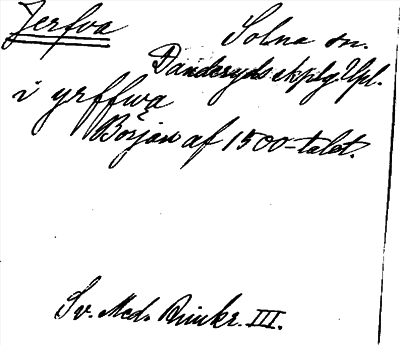 Jerfva
Solna sn.
Danderyds skplg Upl.
i yrffwa
Början af 1500-talet.
Sv. Med. Rimkr. III.